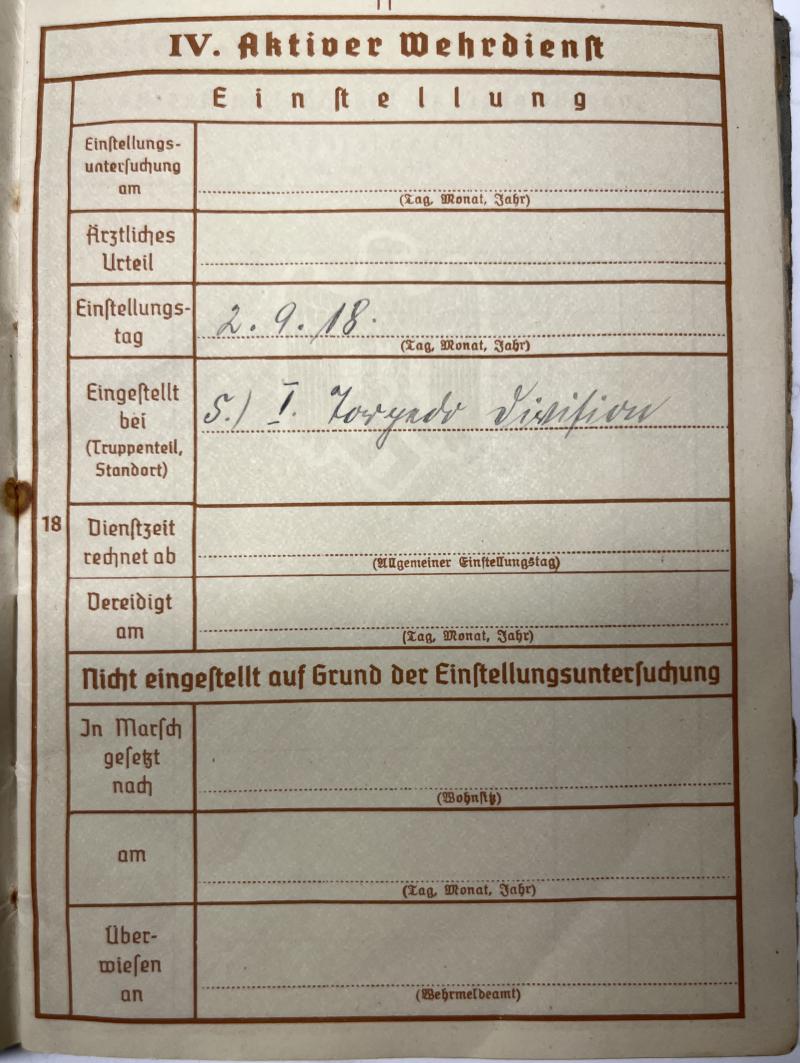 IV. Aktiver Wehrdienst
Einstellung
Einstellungs-
untersuchung
am
(Tag, Monat, Jahr)
Ärztliches
Urteil
Einstellungs-
tag
2. 9. 18.
(Tag, Monat, Jahr)
Eingestellt
bei
(Truppenteil,
Standort)
S.) I. Torpedo Division
18
Dienstzeit
rechnet ab
(Allgemeiner Einstellungstag)
Vereidigt
am
(Tag, Monat, Jahr)
Nicht eingestellt auf Grund der Einstellungsuntersuchung
In Marsch
gesetzt
nach
(Wohnsitz)
am
(Tag, Monat, Jahr)
Über-
wiesen
an
(Wehrmeldeamt)